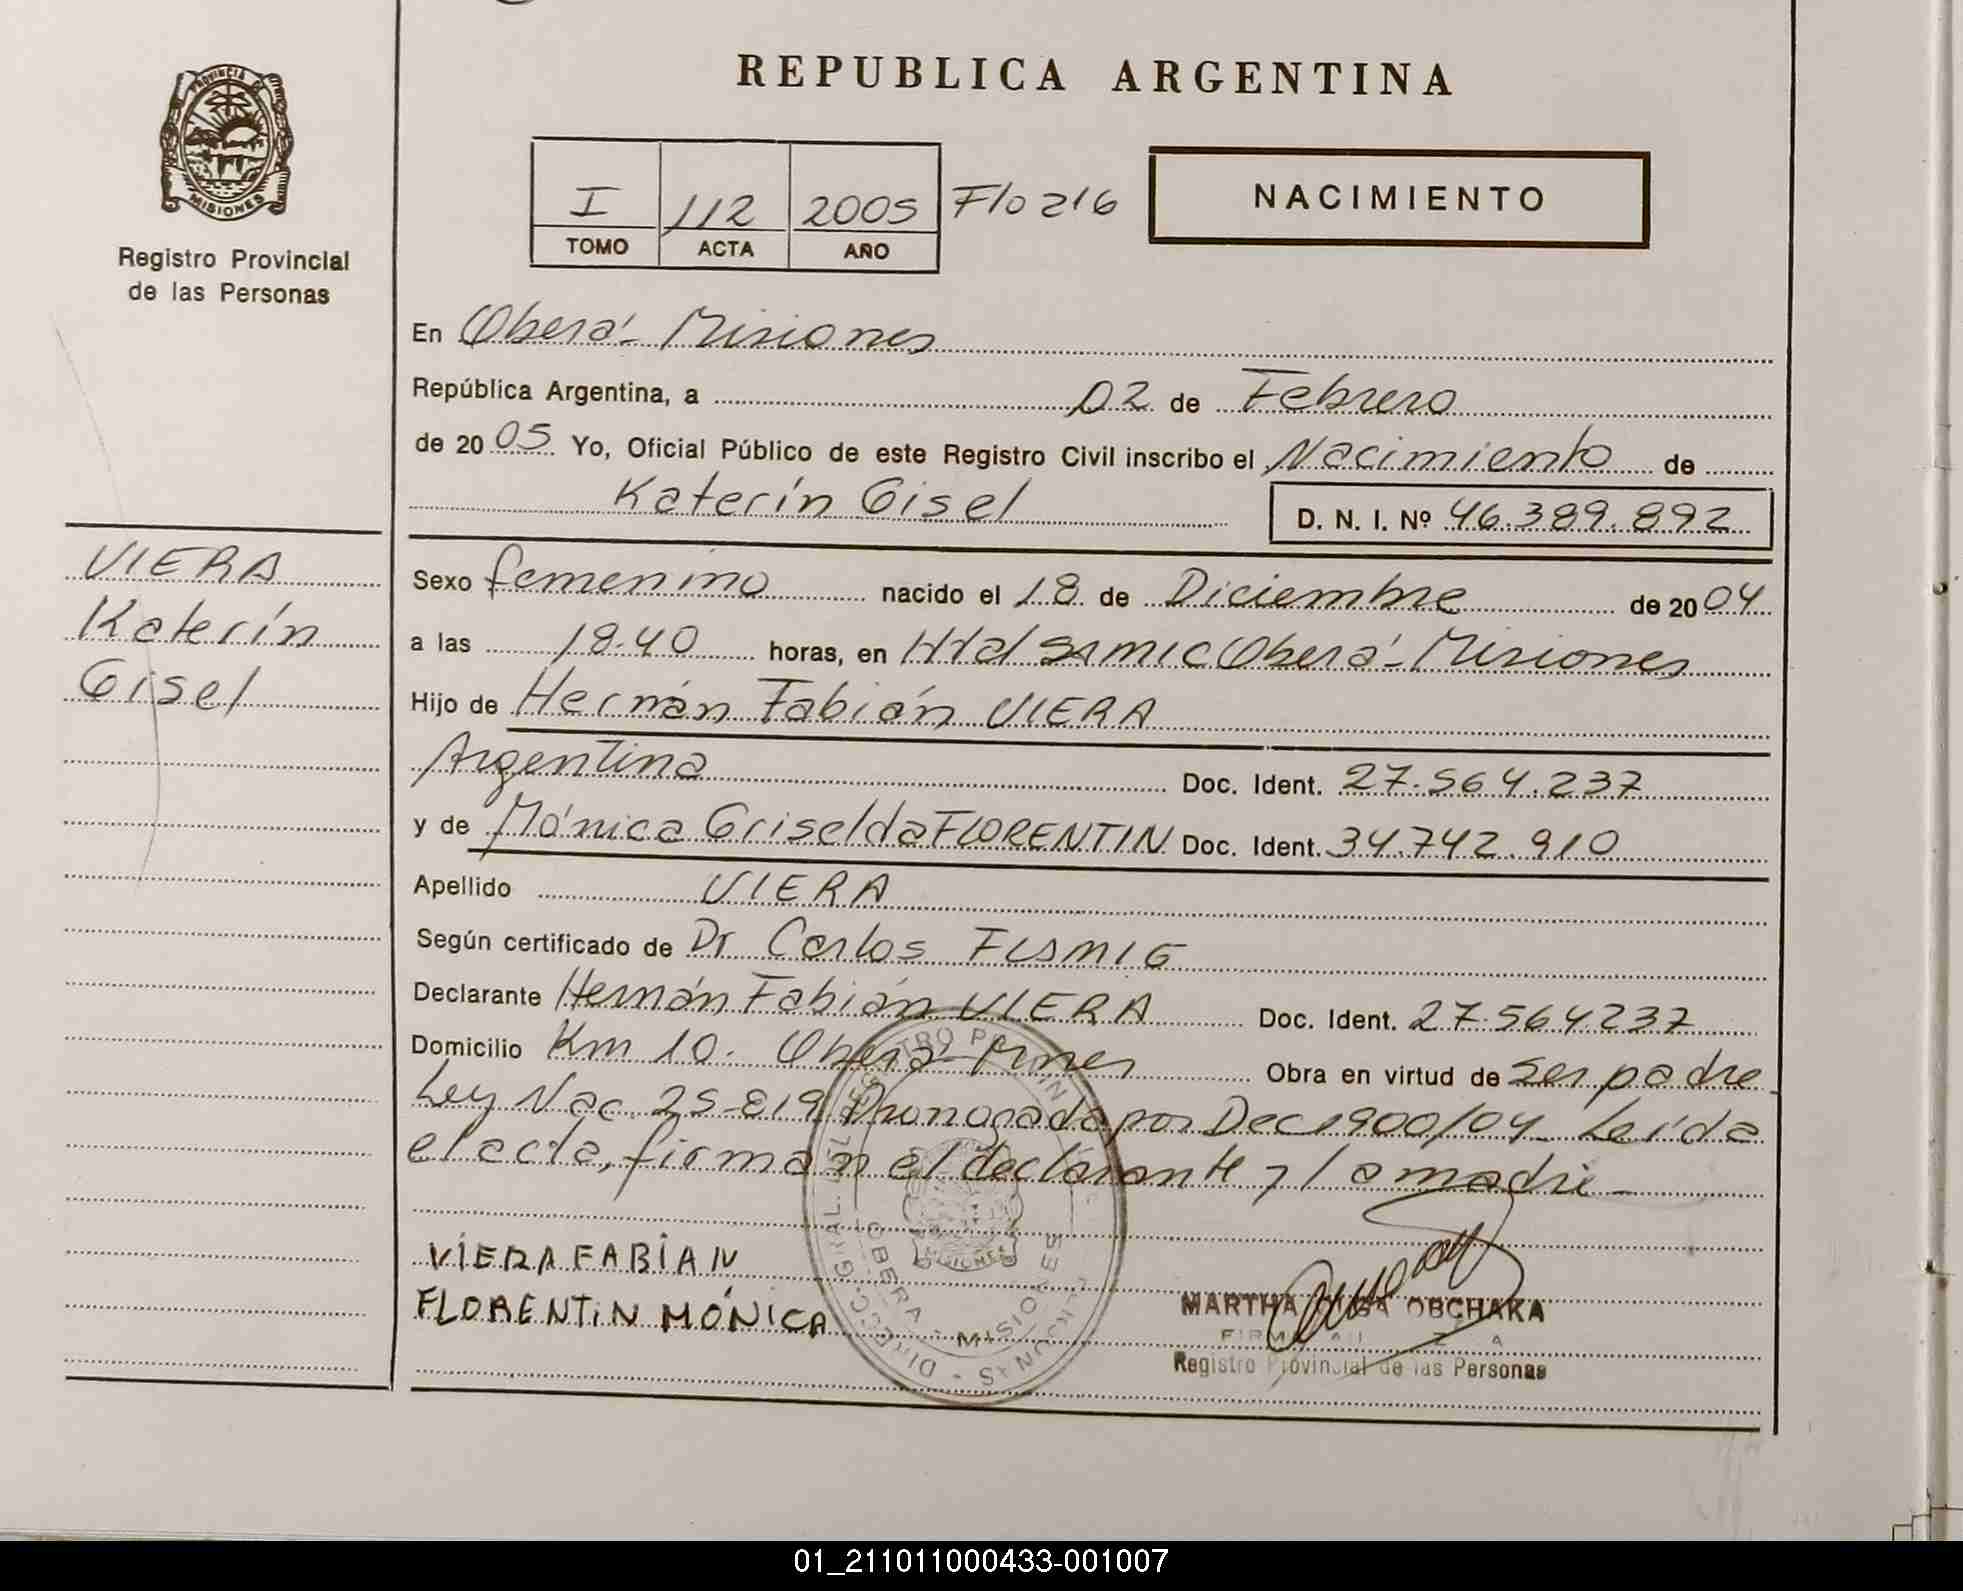 REPUBLICA ARGENTINA
PROVINCIA DE
MISIONES
Registro Provincial
de las Personas
I 112 2005 Flo 216
TOMO ACTA AÑO
NACIMIENTO
En Oberá - Misiones
República Argentina, a 02 de Febrero
de 20 05 Yo, Oficial Público de este Registro Civil inscribo el Nacimiento de
Katerín Gisel D. N. I. Nº 46.389.892
VIERA
Katerín
Gisel
Sexo femenino nacido el 18 de Diciembre de 20 04
a las 18.40 horas, en Htal SAMIC Oberá - Misiones
Hijo de Hernán Fabián VIERA
Argentina Doc. Ident. 27.564.237
y de Mónica Griselda FLORENTIN Doc. Ident. 34.742.910
Apellido VIERA
Según certificado de Dr Carlos
Declarante Hernán Fabián VIERA Doc. Ident. 27.564.237
Domicilio Km 10. Oberá - Mnes Obra en virtud de ser padre
Ley Nac. 25.819 Prorrogada por Dec 1900/04. Leída
el acta, firman el declarante y la madre -
VIERA FABIAN
FLORENTIN MÓNICA
MARTHA OLGA OBCHAKA
Registro Provincial de las Personas
OBERA - MISIONES
01_211011000433-001007